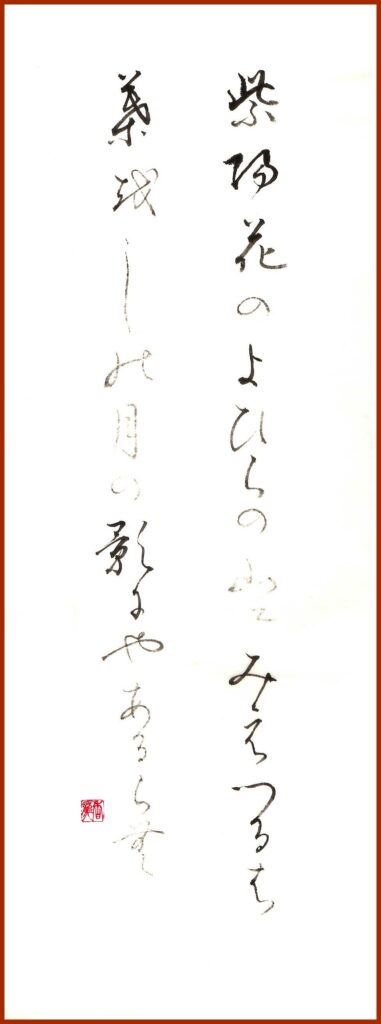 紫陽花のよひらの山にみえつるは
葉越しの月の影にやあるらむ